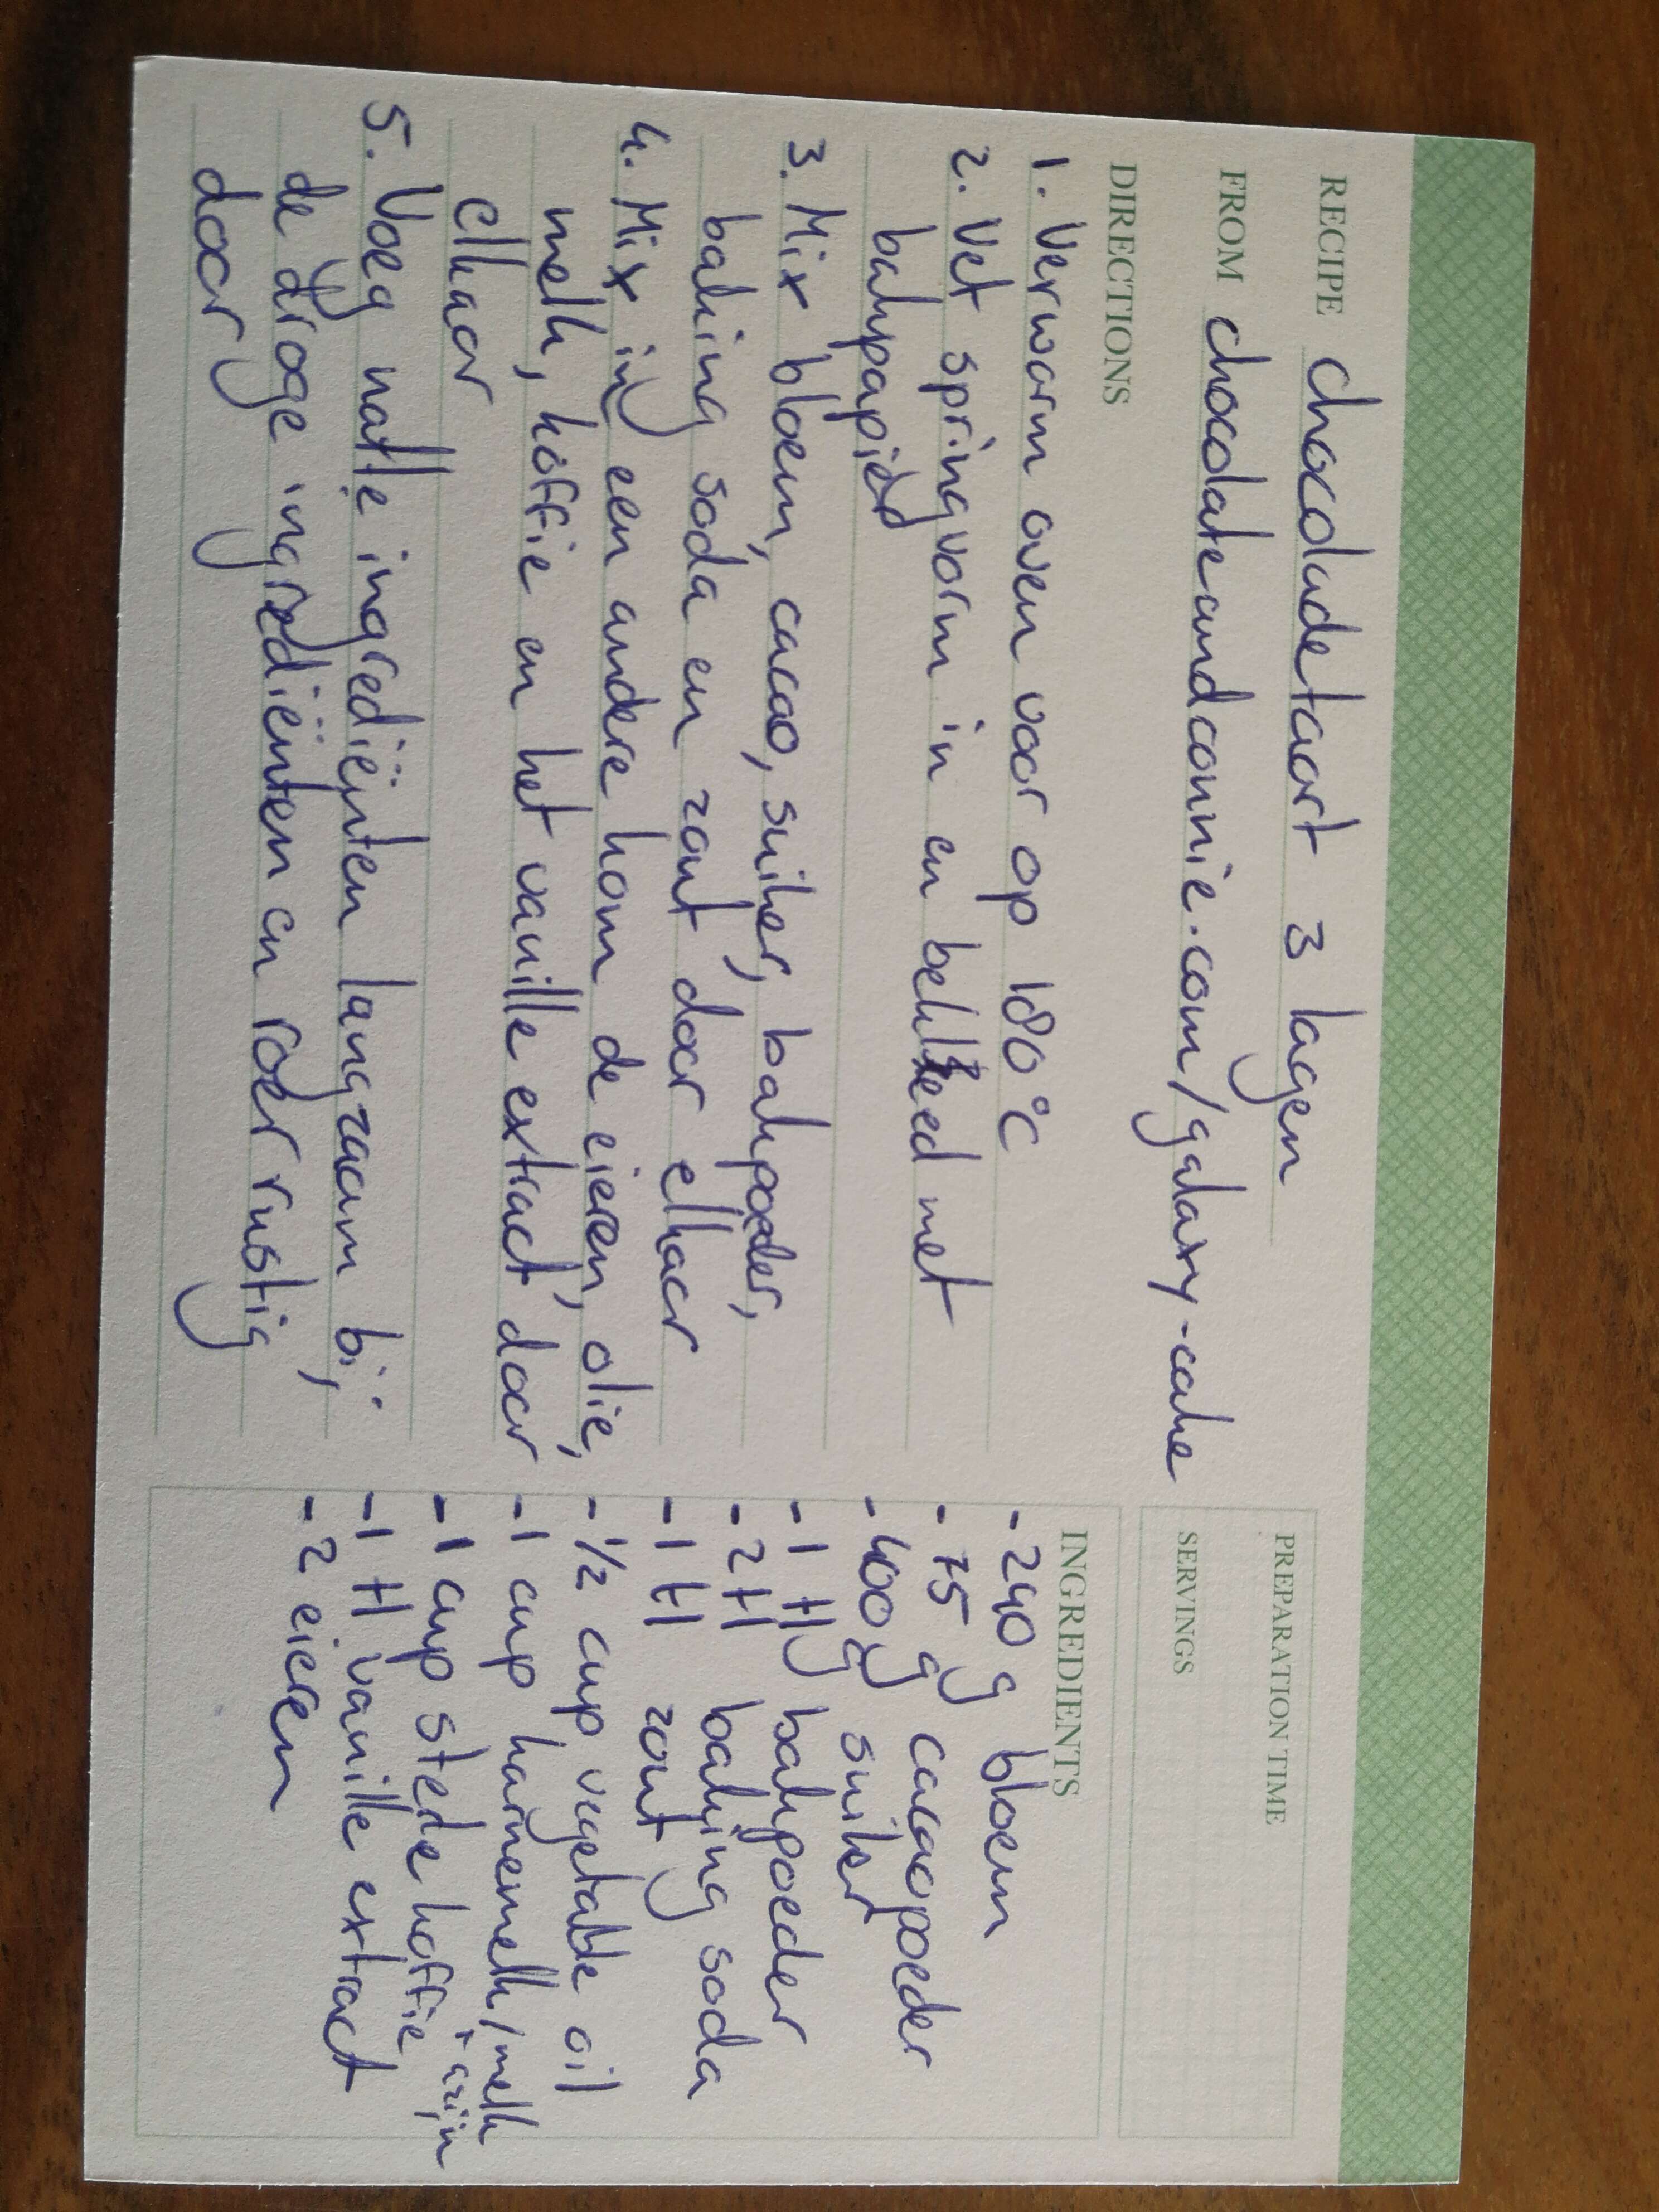 RECIPE chocoladetaart 3 lagen
FROM chocolateandconnie.com/galaxy-cake
PREPARATION TIME
SERVINGS
DIRECTIONS
1. Verwarm oven voor op 180 °C
2. Vet springvorm in en bekleed met
bakpapier
3. Mix bloem, cacao, suiker, bakpoeder,
baking soda en zout door elkaar
4. Mix in een andere kom de eieren, olie,
melk, koffie en het vanille extract door
elkaar
5. Voeg natte ingrediënten langzaam bij
de droge ingrediënten en roer rustig
door
INGREDIENTS
- 240 g bloem
- 75 g cacaopoeder
- 400 g suiker
- 1 tl bakpoeder
- 2 tl baking soda
- 1 tl zout
- 1/2 cup vegetable oil
- 1 cup karnemelk/melk
+ azijn
- 1 cup sterke koffie
- 1 tl vanille extract
- 2 eieren